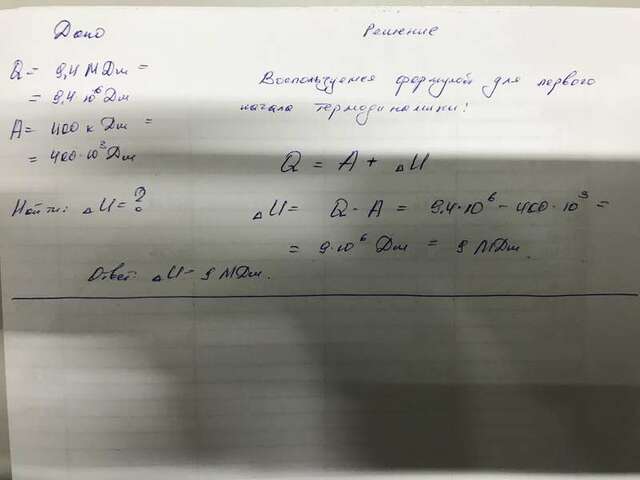 Дано
Q = 9,4 МДж =
= 9,4·10⁶ Дж
A = 400 кДж =
= 400·10³ Дж
Найти: ΔU = ?
Решение
Воспользуемся формулой для первого
начала термодинамики:
Q = A + ΔU
ΔU = Q - A = 9,4·10⁶ - 400·10³ =
= 9·10⁶ Дж = 9 МДж.
Ответ: ΔU = 9 МДж.